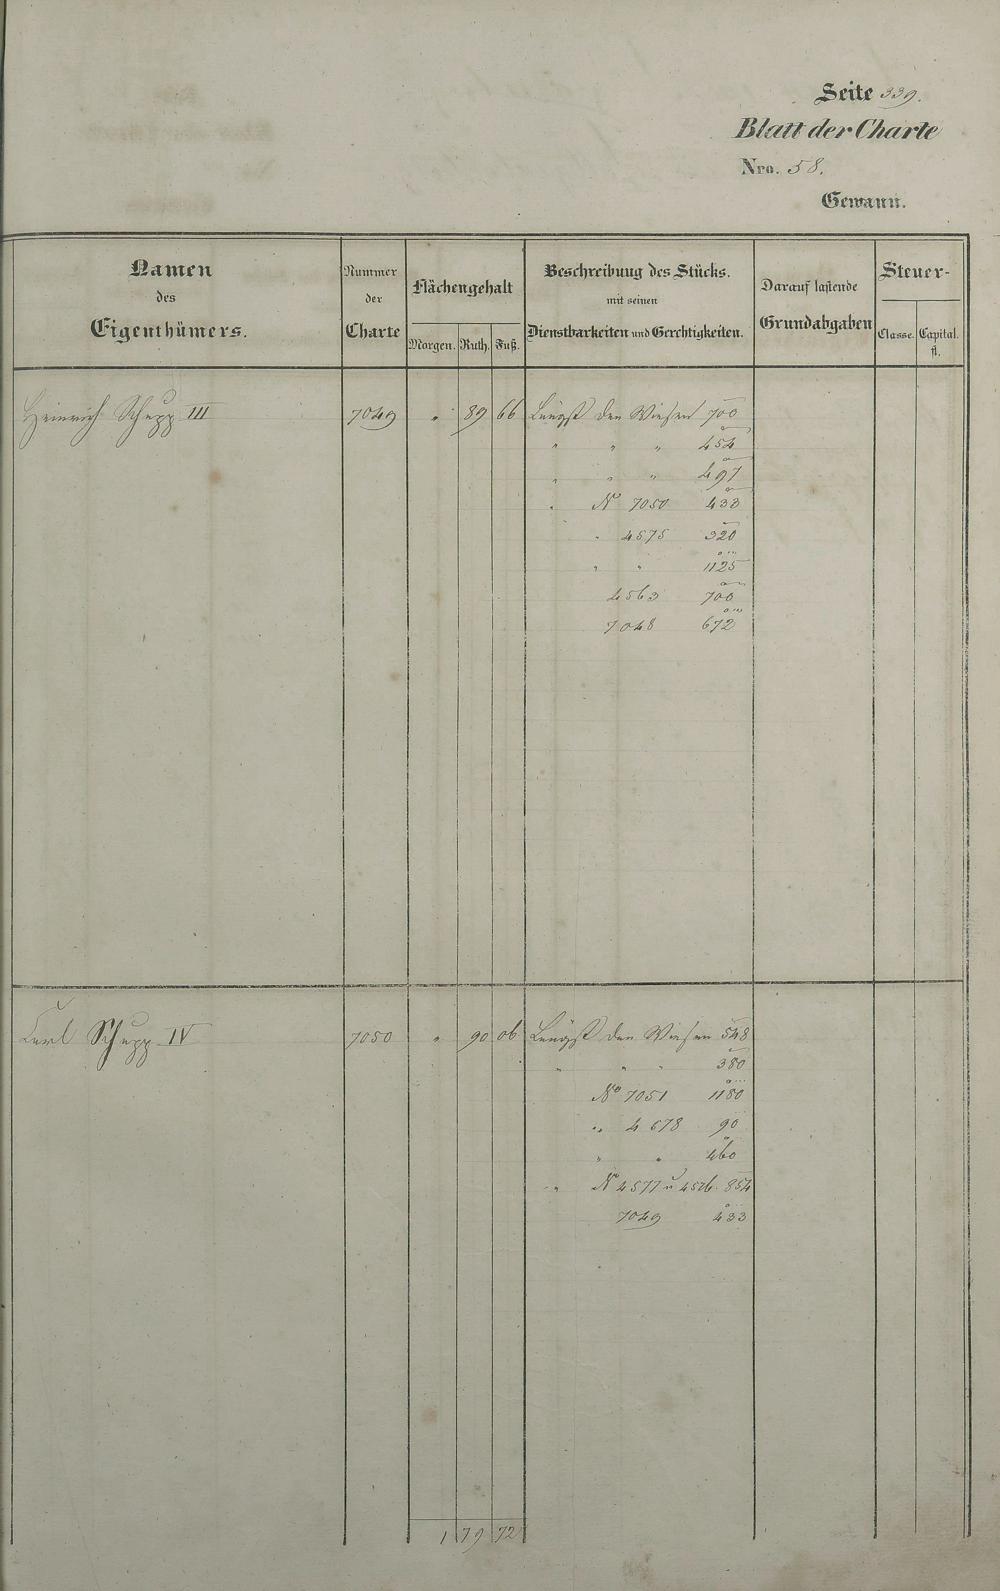 Seite 339.
Blatt der Charte
Nro. 58.
Gewann.
Namen des Eigenthümers.
Nummer der Charte
Flächengehalt
Morgen. Ruth. Fuß.
Beschreibung des Stücks.
mit seinen
Dienstbarkeiten und Gerechtigkeiten.
Darauf lastende
Grundabgaben
Steuer-
Classe. Capital. fl.
Heinrich Schupp III 7049 " 89 66 Längst den Wiesen 700
" " " 454
" " " 497
" No 7050 433
" 4575 320
" " 1125
4563 700
7048 672
Carl Schupp IV 7050 " 90 06 Längst den Wiesen 548
" " " 380
No 7051 1180
" 4578 90
" " 460
" No 4577 u 4576. 854
7049 433
1 79 72